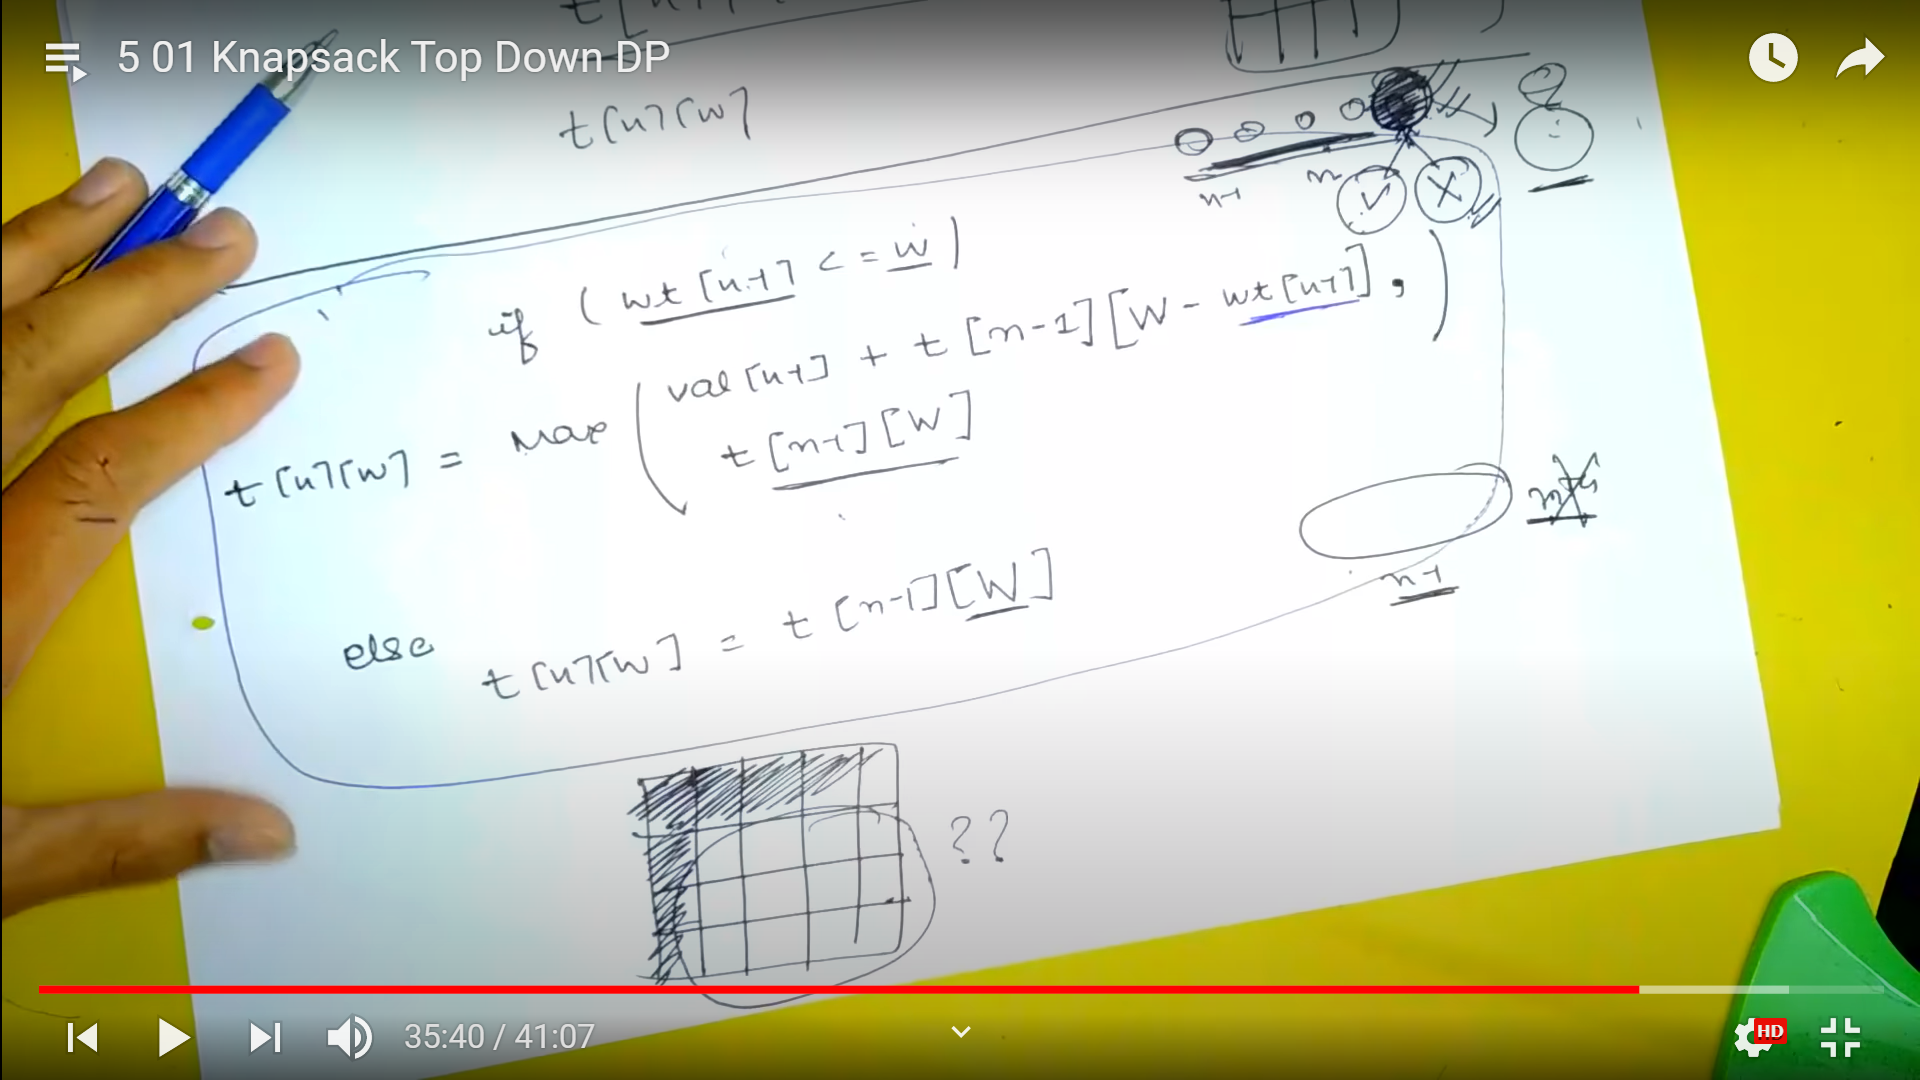 5 01 Knapsack Top Down DP
t[n][w]
n-1 n
if (wt[n-1] <= w)
t[n][w] = max (val[n-1] + t[n-1][W - wt[n-1]],
t[n-1][W])
n-1
else t[n][w] = t[n-1][W]
??
35:40 / 41:07
HD